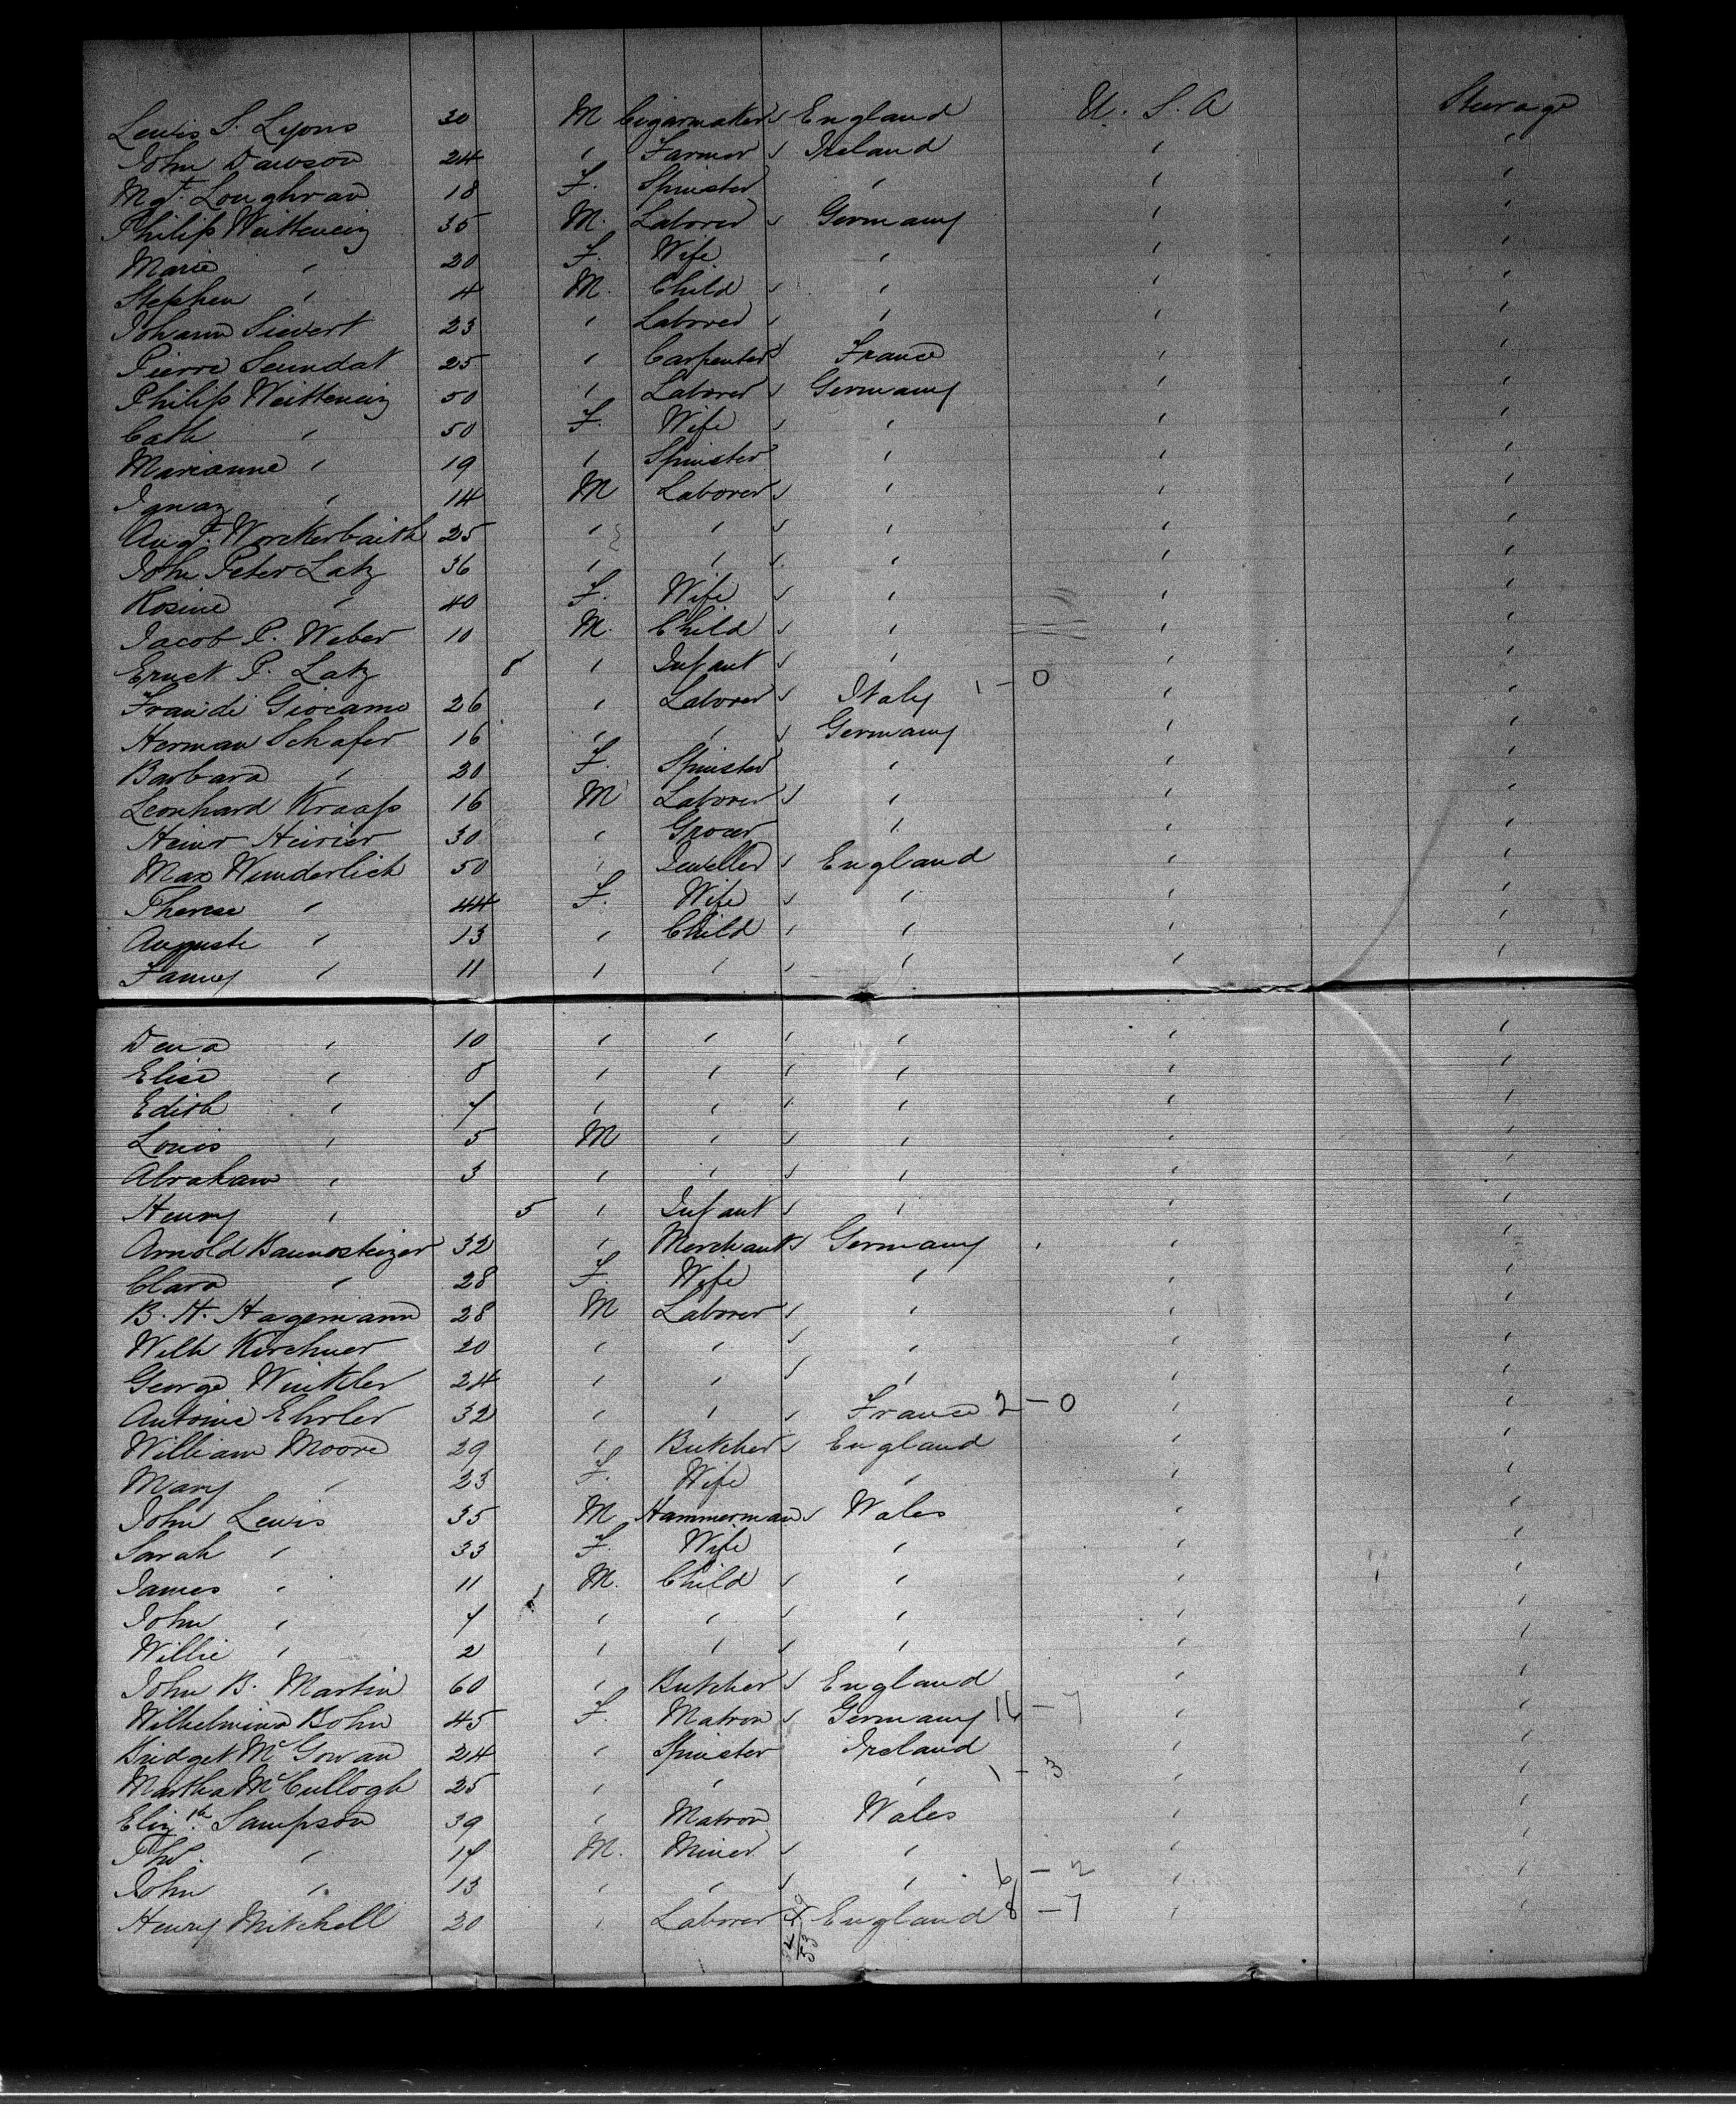 Lewis S. Lyons 30 M Cigarmaker England U. S. A Steerage
John Dawson 24 " Farmer Ireland " "
Mgt. Loughran 18 F. Spinster " " "
Philip Weittencin 35 M. Laborer Germany " "
Marie " 20 F. Wife " " "
Stephen " 4 M. Child " " "
Johann Sievert 23 " Laborer " " "
Pierre 25 " Carpenter France " "
Philip Weittencin 50 " Laborer Germany " "
Cath " 50 F. Wife " " "
Marianne " 19 " Spinster " " "
Ignaz " 14 M Laborer " " "
Augt. 25 " " " " "
John Peter Latz 36 " " " " "
Rosine " 40 F. Wife " " "
Jacob P. Weber 10 M. Child " " "
Ernst P. Latz 8 " Infant " " "
Giocamo 26 " Laborer Italy 1 - 0 " "
Herman Schafer 16 " " Germany " "
Barbara " 20 F. Spinster " " "
Leonhard Kraafs 16 M Laborer " " "
Heinr Heirier 30 " Grocer " " "
Max Wunderlich 50 " Jeweller England " "
Therese " 44 F. Wife " " "
Auguste " 13 " Child " " "
Fanny " 11 " " " " "
Dena " 10 " " " " "
Elise " 8 " " " " "
Edith " 7 " " " " "
Louis " 5 M " " " "
Abraham " 3 " " " " "
Henry " 5 " Infant " " "
Arnold 32 " Merchant Germany " "
Clara " 28 F. Wife " " "
B. H. Hagemann 28 M Laborer " " "
Wilh Kirchner 20 " " " " "
George Winkler 24 " " " " "
Antoine Ehrler 32 " " France 2 - 0 " "
William Moore 29 " Butcher England " "
Mary " 23 F. Wife " " "
John Lewis 35 M Hammerman Wales " "
Sarah " 33 F. Wife " " "
James " 11 M. Child " " "
John " 7 " " " " "
Willie " 2 " " " " "
John B. Martin 60 " Butcher England " "
Wilhelmina Bohn 45 F. Matron Germany 16 - 7 " "
Bridget McGowan 24 " Spinster Ireland " "
Martha McCullogh 25 " " " 1 - 3 " "
Elizth. Sampson 39 " Matron Wales " "
Tho. " 17 M. Miner " " "
John " 13 " " " 6 - 2 " "
Henry Mitchell 20 " Laborer England 8 - 7 " "